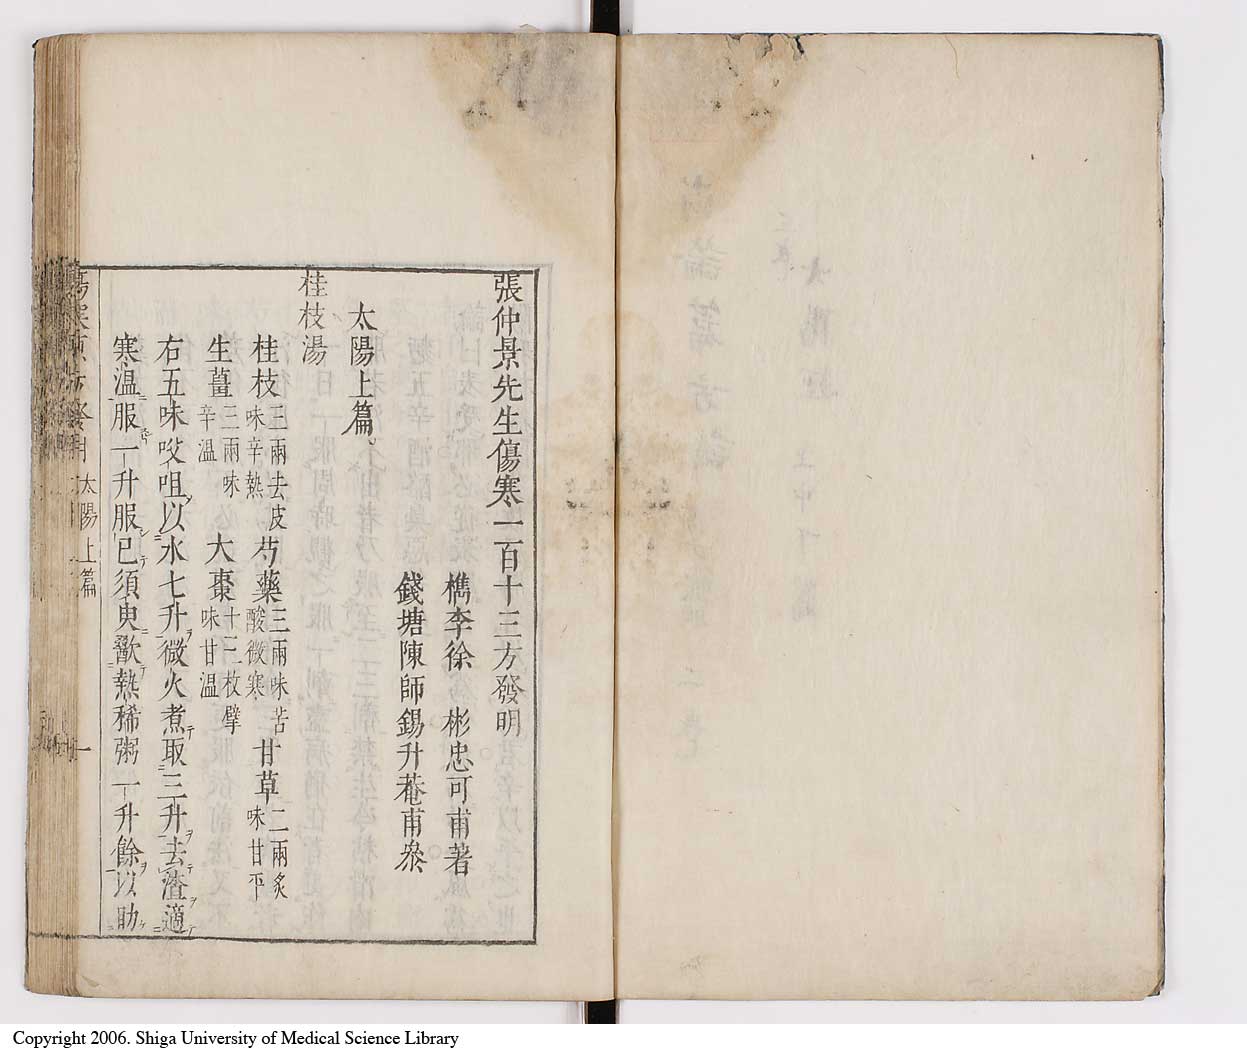 張仲景先生傷寒一百十三方發明
檇李徐 彬忠可甫著
錢塘陳師錫升菴甫叅
太陽上篇
桂枝湯
桂枝三兩去皮味辛熱 芍藥三兩味苦酸微寒 甘草二兩炙味甘平
生薑三兩味辛溫 大棗十二枚擘味甘溫
右五味㕮咀以水七升微火煮取三升去渣適
寒溫服一升服已須臾歠熱稀粥一升餘以助
太陽上篇
一
Copyright 2006. Shiga University of Medical Science Library